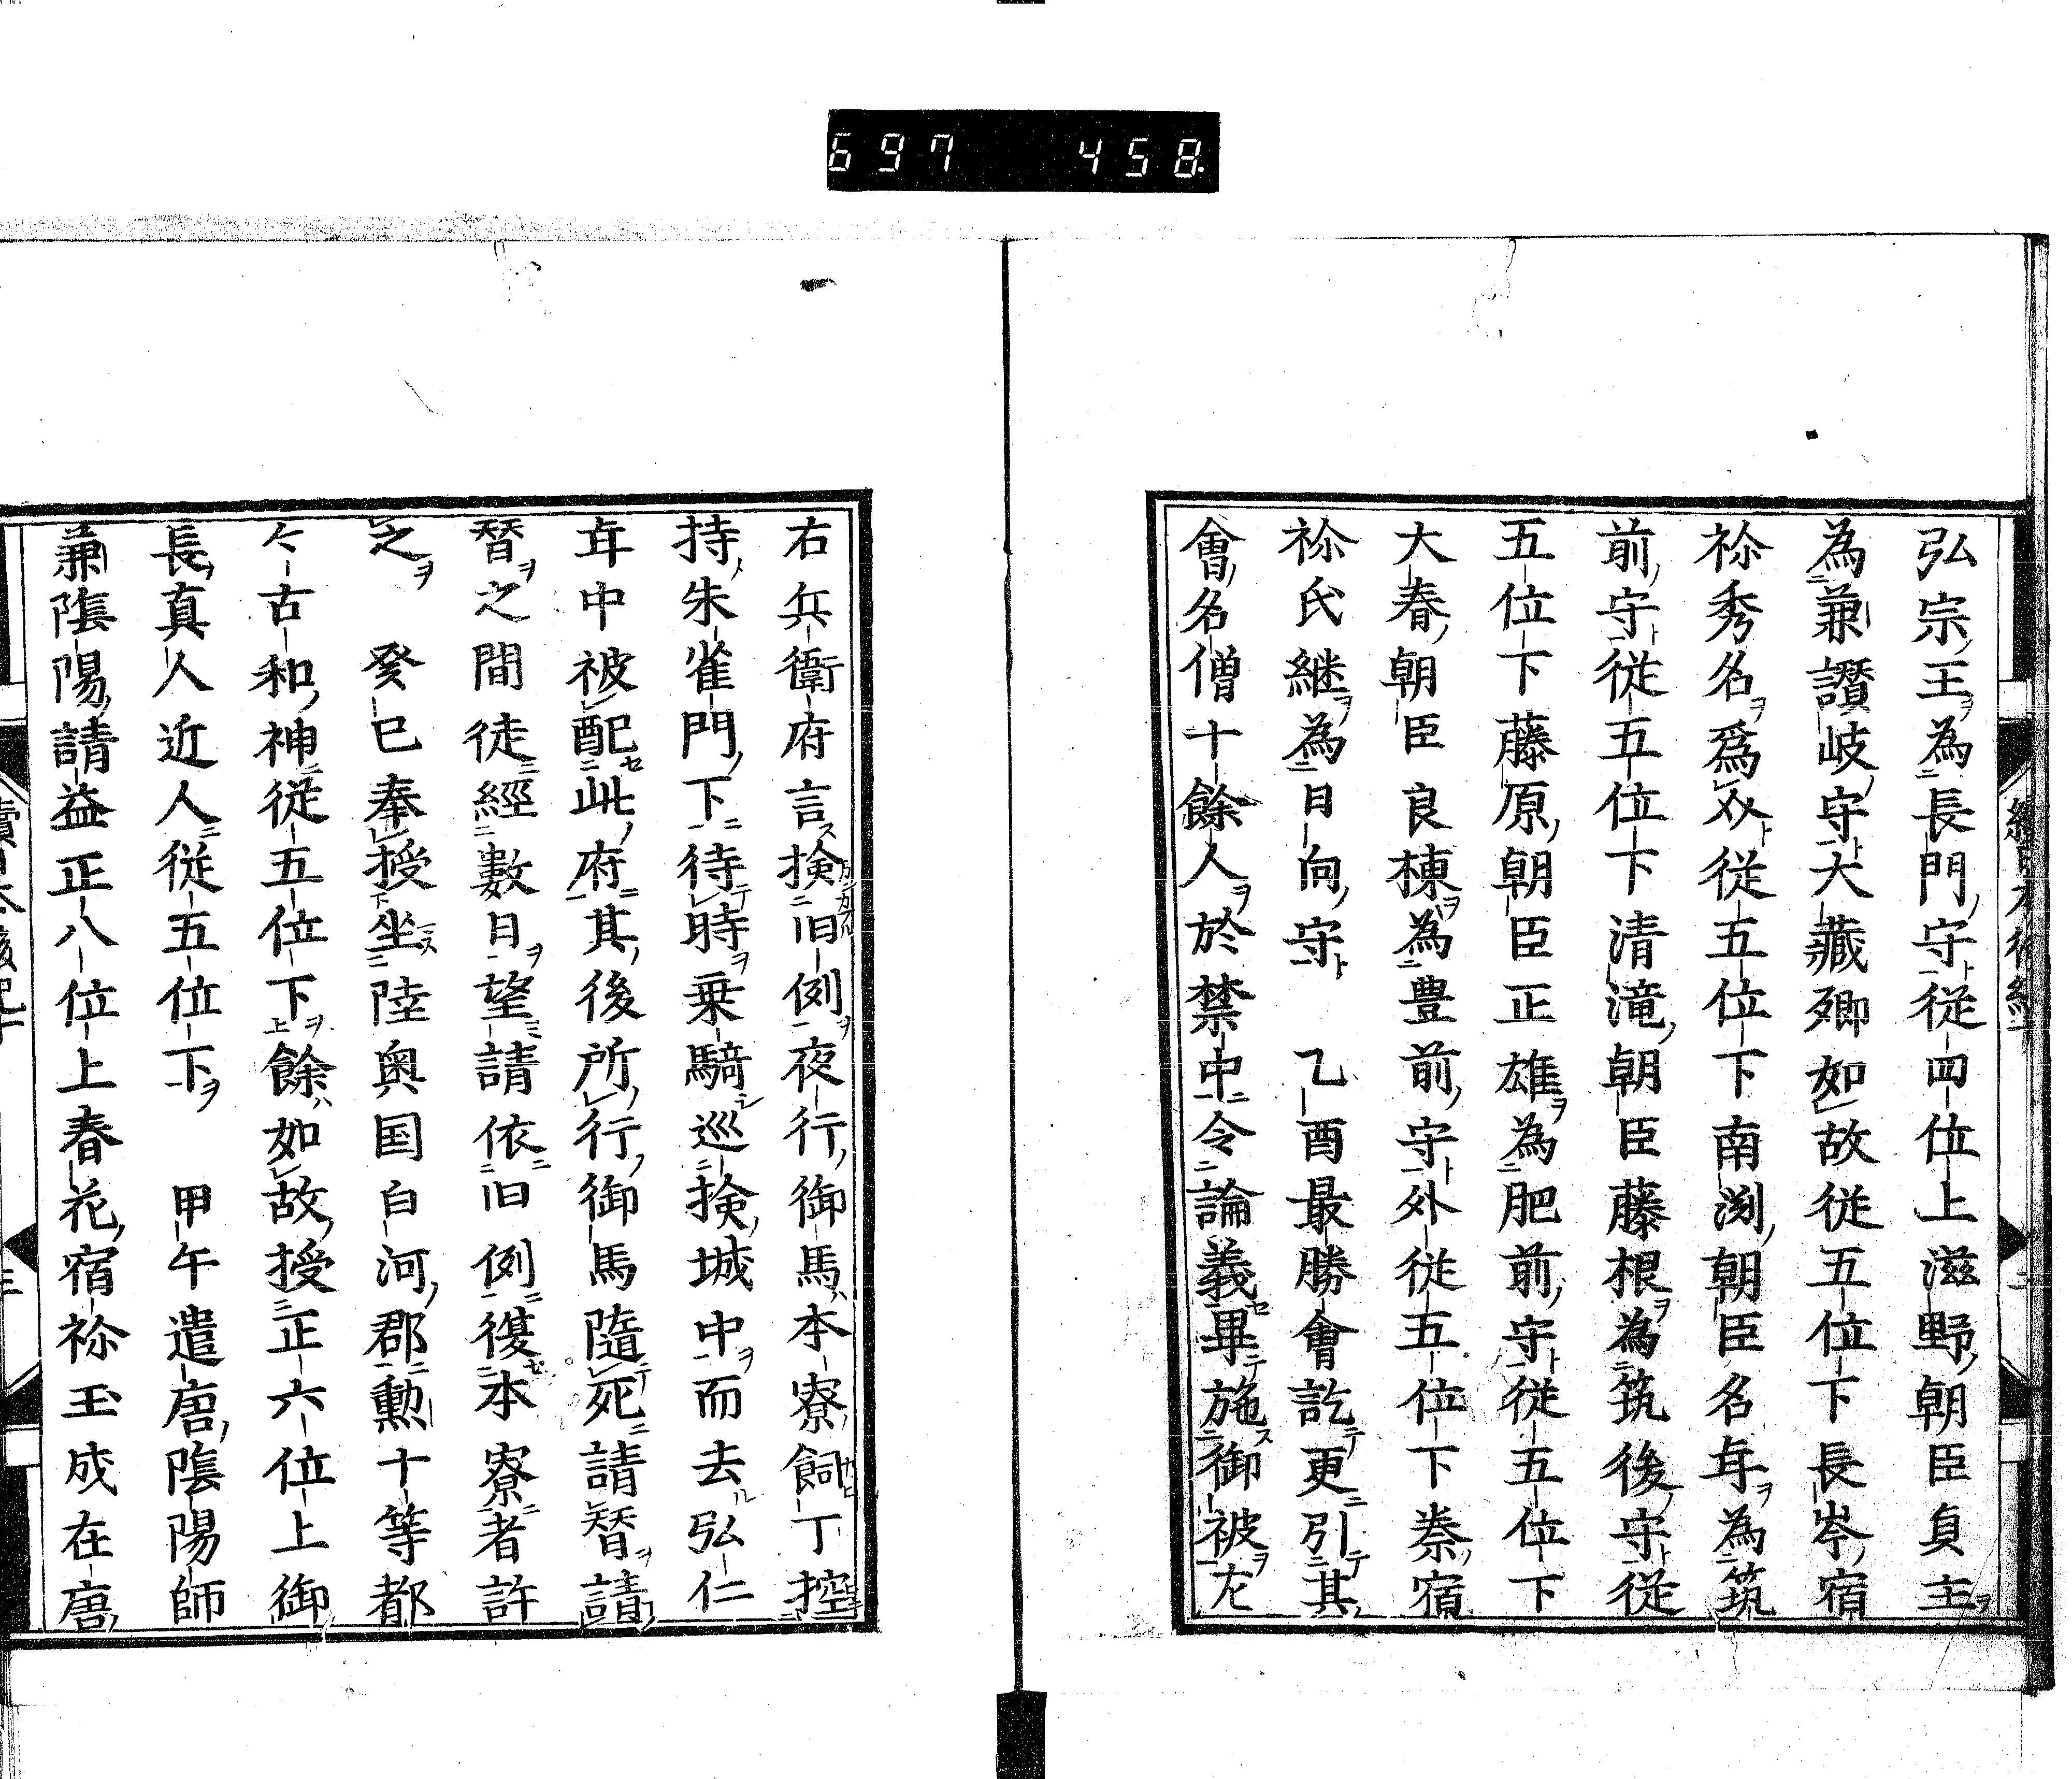 697 458
弘宗王為長門守従四位上滋野朝臣貞主
為兼讃岐守大蔵卿如故従五位下長岑宿
祢秀名爲介従五位下南渕朝臣名年為筑
前守従五位下清滝朝臣藤根為筑後守従
五位下藤原朝臣正雄為肥前守従五位下
大春朝臣良棟為豊前守外従五位下秦宿
祢氏継為日向守　乙酉最勝會訖更引其
會名僧十餘人於禁中令論義畢施御被左
右兵衛府言撿旧例夜行御馬本寮飼丁控
持朱雀門下待時乗騎巡撿城中而去弘仁
年中被配此府其後所行御馬隨死請替請
替之間徒經數日望請依旧例復本寮者許
之　癸巳奉授坐陸奥国白河郡勲十等都
々古和神従五位下餘如故授正六位上御
長真人近人従五位下　甲午遣唐陰陽師
兼陰陽請益正八位上春花宿祢玉成在唐